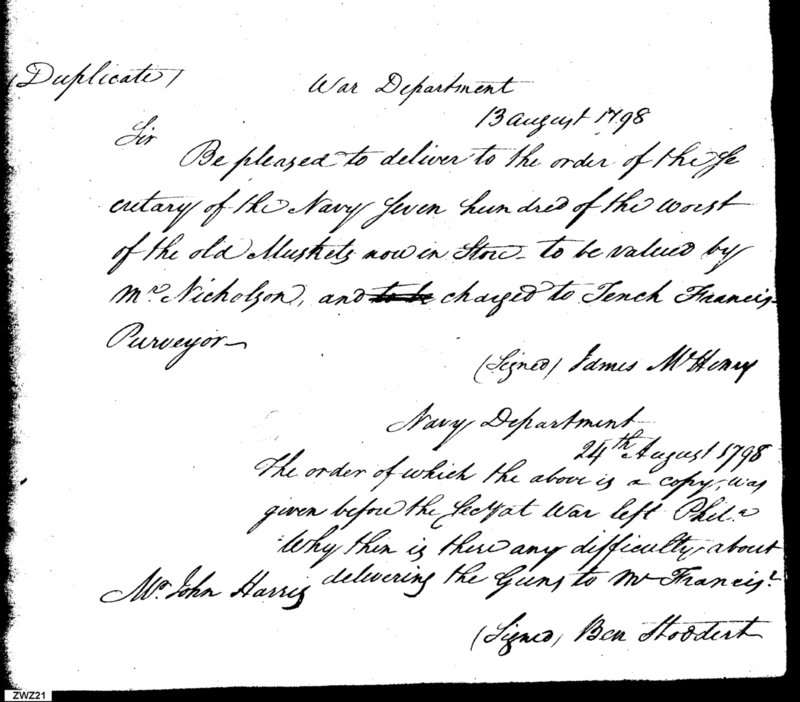 (Duplicate)
War Department
13 August 1798
Sir
Be pleased to deliver to the order of the Se
cretary of the Navy Seven hundred of the worst
of the old Muskets now in Store – to be valued by
Mr. Nicholson, and to be charged to Tench Francis
Purveyor –
(Signed) James McHenry
Navy Department
24th August 1798
The order of which the above is a copy, was
given before the Secy at War left Phila
Why then is there any difficulty about
delivering the Guns to Mr Francis?
Mr. John Harris
(Signed) Ben Stoddert
ZWZ21